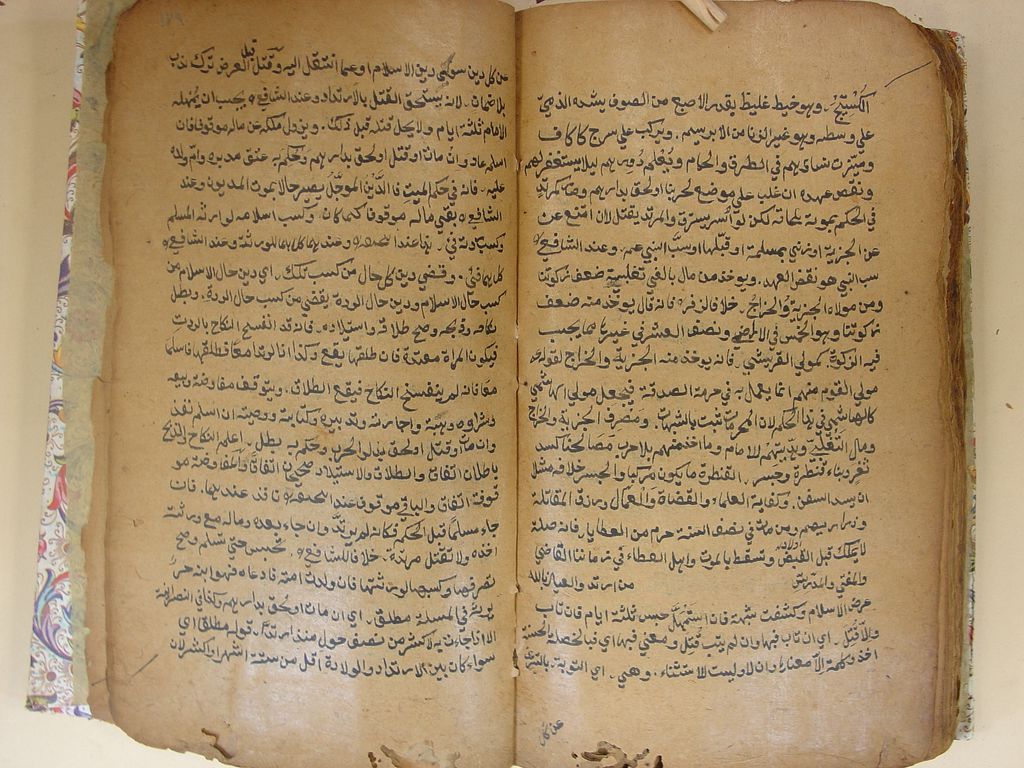 الكستيج وهو خيط غليظ بقدر الاصبع من الصوف يشده الذمي
على وسطه وهو غير الزنار من الابريسم ويركب على سرج كاكاف
وميزت نساؤهم في الطرق والحمام ويعلم دورهم ليلا يستغفر لهم
ونقض عهده ان غلب على موضع لحربنا او لحق بدارهم وصار كمرتد
في الحكم بموته بلحاقه لكن لو اسر يسترق والمرتد يقتل لا ان امتنع عن
عن الجزية او زنى بمسلمة او قتلها او سب النبي عم وعند الشافعي
سب النبي هو نقض العهد ويوخذ من مال بالغي تغلبي ضعف زكوتنا
ومن مولاه الجزية والخراج خلافا لزفر فانه قال يوخذ منه ضعف
زكوتنا وهو الخمس في الاراضي ونصف العشر في غيرها مما يجب
فيه الزكوة كمولى القرشي فانه يوخذ منه الجزية والخراج لقوله عم
مولى القوم منهم انما يعمل به في حرمة الصدقة فيجعل مولى الهاشمي
كالهاشمي في هذا الحكم لان المحرمات تثبت بالشبهات ومصرف الجزية والخراج
ومال التغلبي وهديتهم للامام وما اخذ منهم بلا حرب مصالحنا كسد
ثغر وبناء قنطرة وجسر القنطرة ما يكون مركبا والجسر خلافه مثل
ان يسد السفن وكفاية العلماء والقضاة والعمال ورزق المقاتلة
وذراريهم ومن مات في نصف السنة حرم من العطاء فانه صلة
لا يملك قبل القبض وتسقط بالموت واهل العطاء في زماننا القاضي
والمفتي والمدرس من ارتد والعياذ بالله
عرض الاسلام وكشفت شبهته فان استمهل حبس ثلثة ايام فان تاب
والا قتل اي ان تاب فبها وان لم يتب قتل ومعنى فبها اي فبالخصلة الحسنة
اخذ وكلمة الا معناه وان لا وليست للاستثناء وهي اي التوبة بالتبرى
عن كل
عن كل دين سوى دين الاسلام او عما انتقل اليه وقتله قبل العرض ترك ندب
بلا ضمان لانه يستحق القتل بالارتداد وعند الشافعي يجب ان يمهله
الامام ثلثة ايام ولا يحل قتله قبل ذلك ويزول ملكه عن ماله موقوفا فان
اسلم عاد وان مات او قتل او لحق بدارهم وحكم به عتق مدبره وام ولده
عليه فانه في حكم الميت فالدين المؤجل يصير حالا بموت المديون وعند
الشافعي بقي ماله موقوفا كما كان وكسب اسلامه لوارثه المسلم
وكسب ردته فيء هذا عند ابي حنيفة وعندهما كلاهما للورثة وعند الشافعي
كلاهما فيء وقضي دين كل حال من كسب تلك اي دين حال الاسلام من
كسب حال الاسلام ودين حال الردة يقضى من كسب حال الردة وبطل
نكاحه وذبحه وصح طلاقه واستيلاده فانه قد انفسخ النكاح بالردة
فيكون المرأة معتدة فان طلقها يقع وكذا اذا ارتدا معا فطلقها فاسلما
معا فانه لم ينفسخ النكاح فيقع الطلاق ويتوقف مفاوضته وبيعه
وشراؤه وهبته واجارته وتدبيره وكتابته ووصيته ان اسلم نفذ
وان مات او قتل او لحق بدار الحرب وحكم به بطل اعلم ان النكاح والذبح
باطلان اتفاقا والطلاق والاستيلاد صحيحان اتفاقا والمفاوضة مو
قوفة اتفاقا والباقي موقوفا عند ابي حنيفة نافذ عندهما فان
جاء مسلما قبل الحكم فكانه لم يرتد وان جاء بعده وماله مع ورثته
اخذه ولا تقتل مرتدة خلافا للشافعي تحبس حتى تسلم وصح
تصرفها وكسبها لورثتها فان ولدت امته فادعاه فهو ابنه حر
يرثه في المسلمة مطلقا اي ان مات او لحق بدارهم وكذا في النصرانية
الا اذا جاءت به لاكثر من نصف حول منذ ارتد قوله مطلقا اي
سواء كان بين الارتداد والولادة اقل من ستة اشهر او اكثر لان